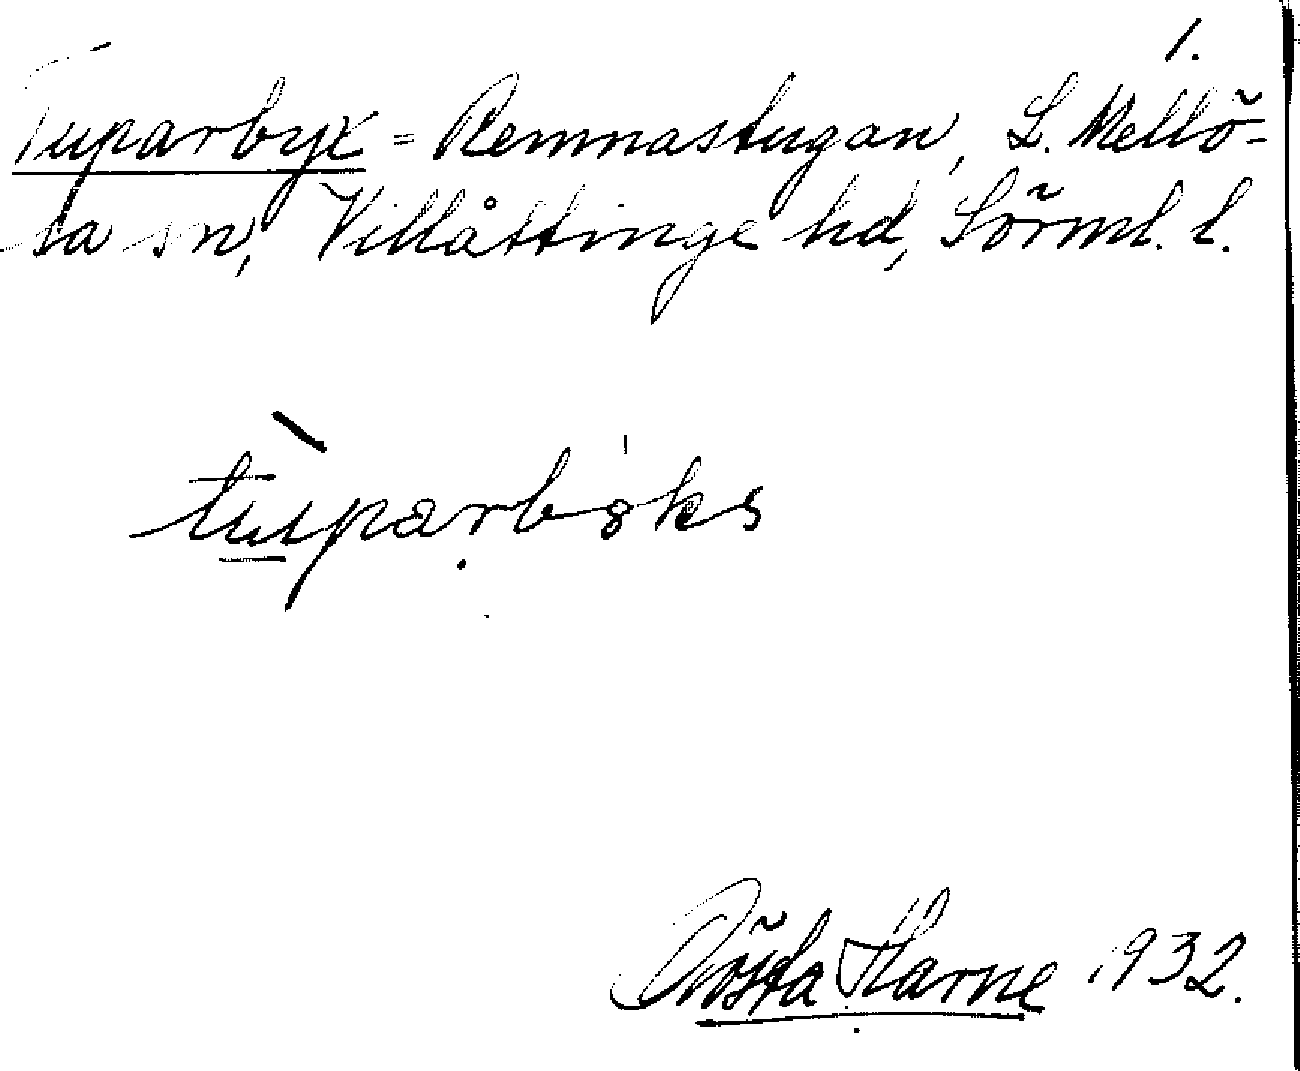 1.
Tuparbyx = Remnastugan, L. Mellö-
sa sn, Villåttinge hd, Sörml. l.
tùparböks
Gösta Harne 1932.